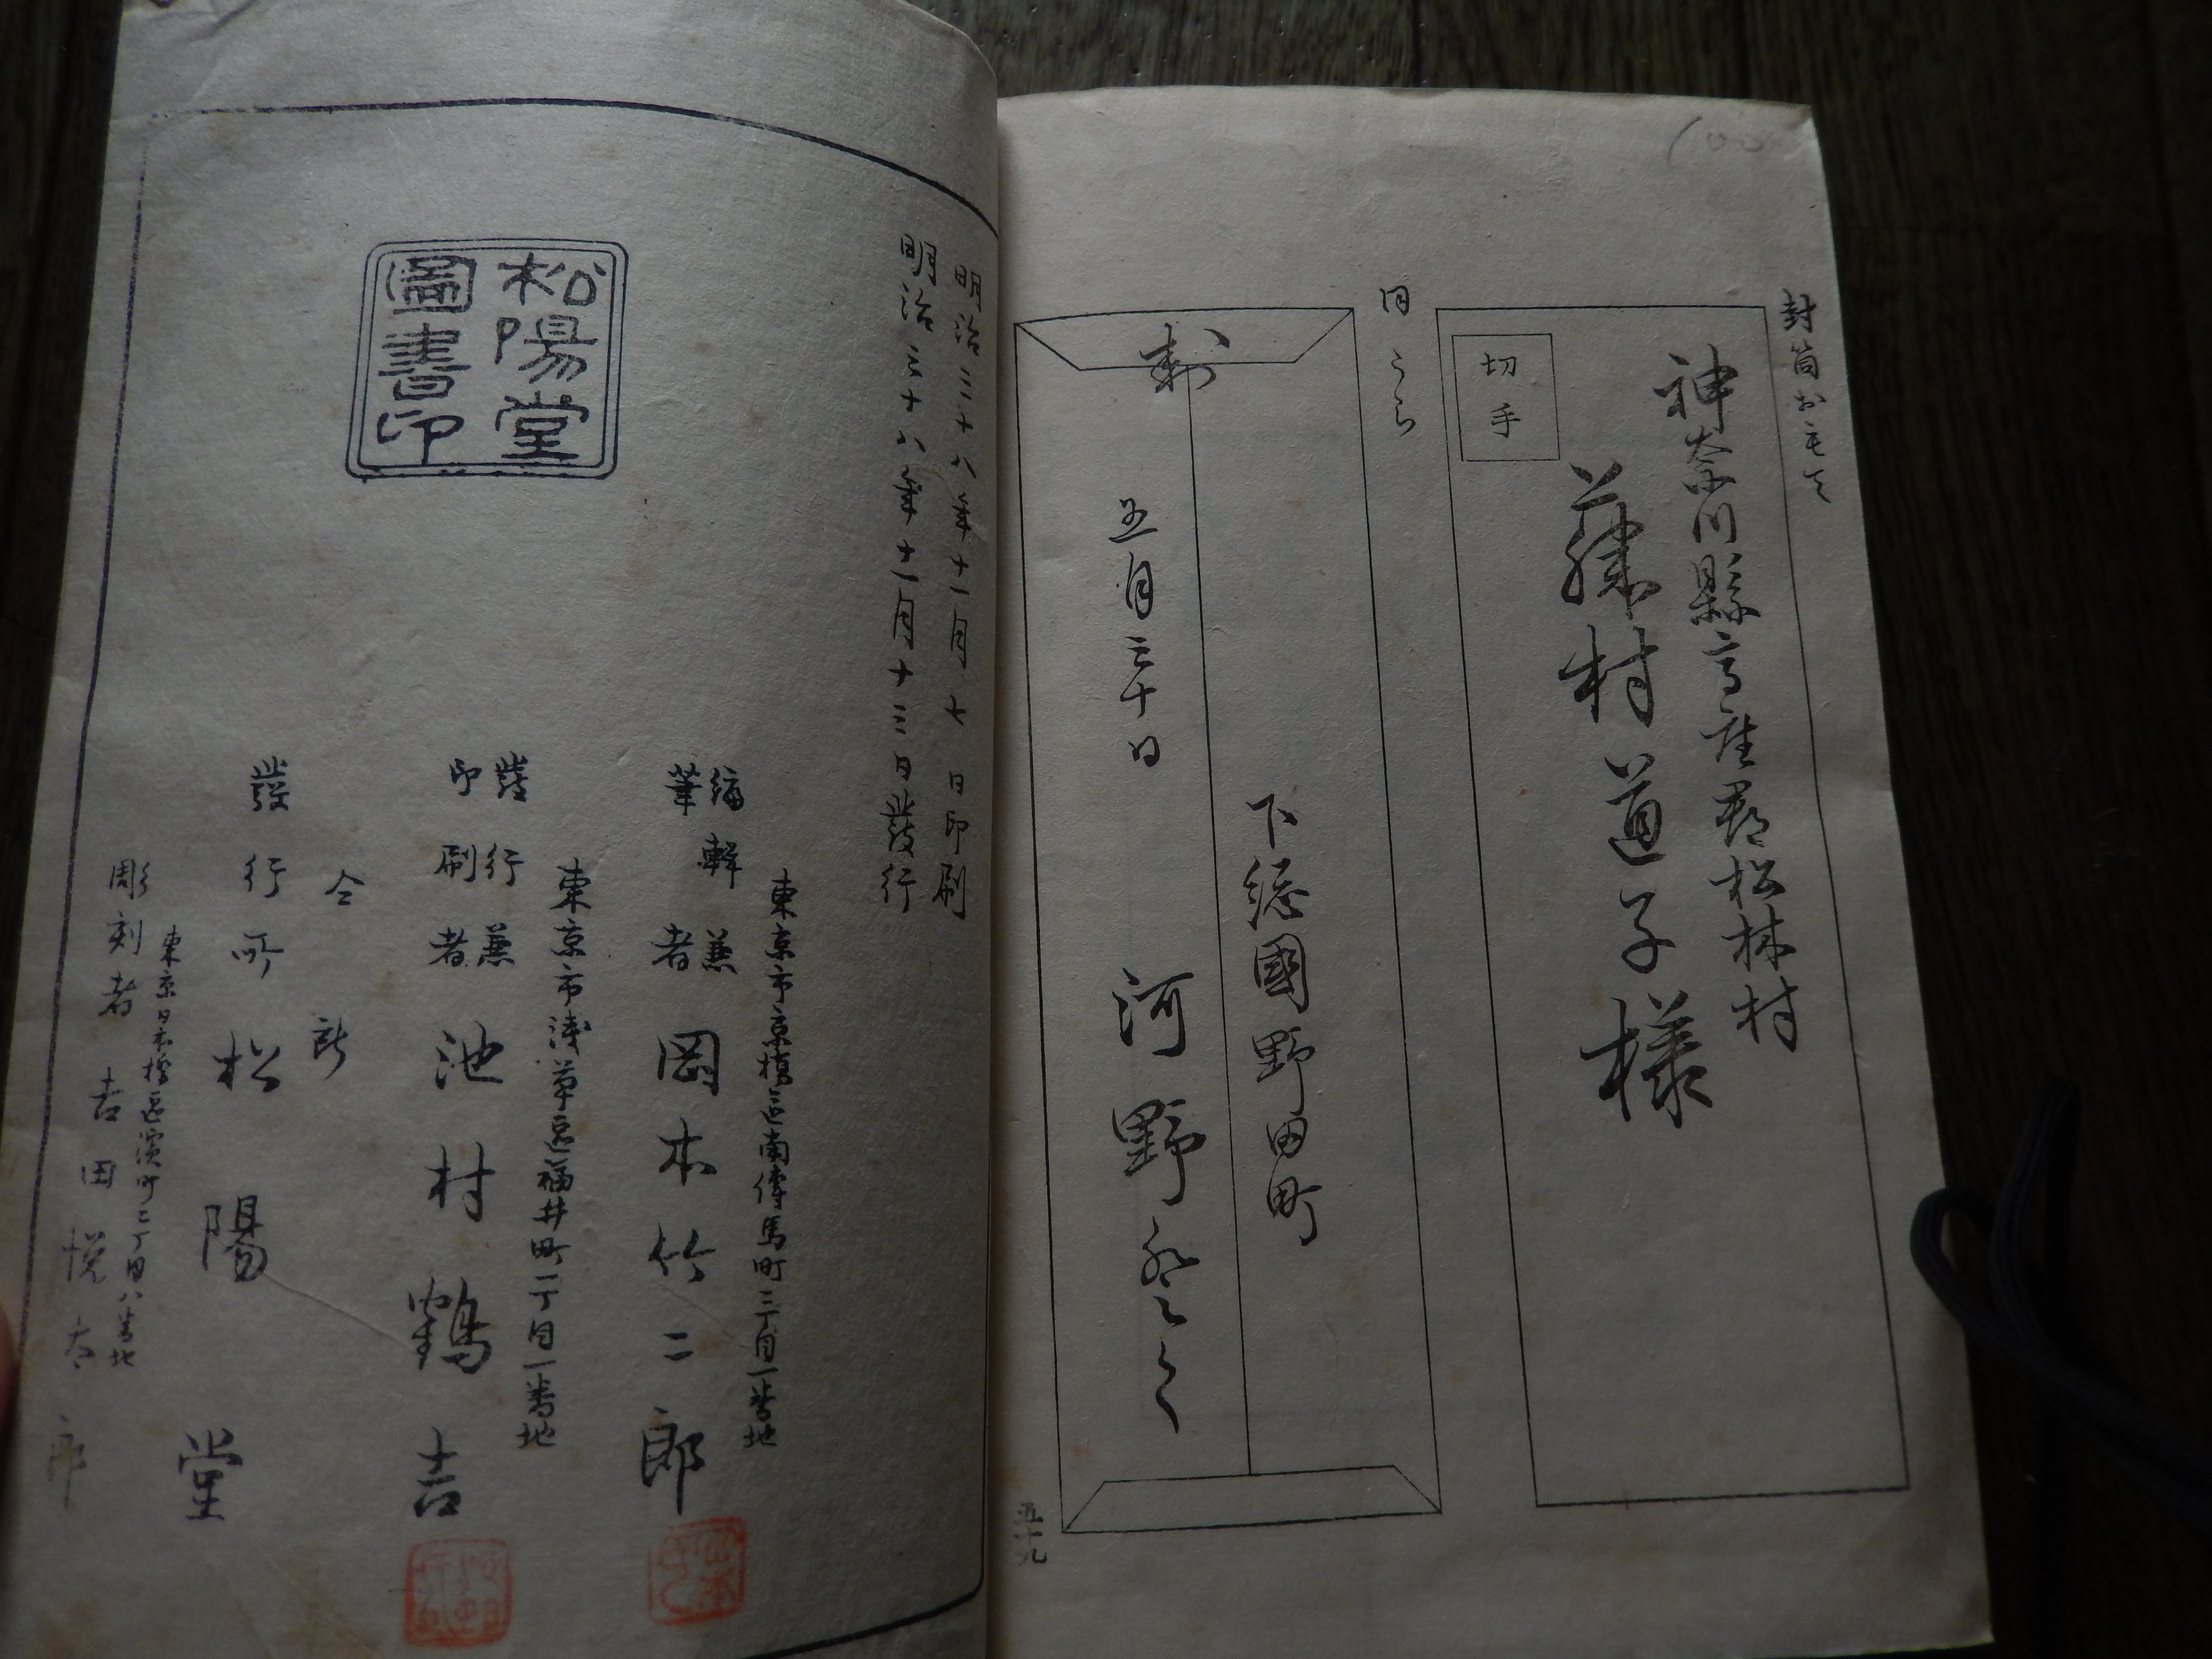 封筒おもて
神奈川縣高座郡松林村
藤村道子様
切手
同うら
下總國野田町
河野
五月三十日
五十九
明治三十八年十一月十日印刷
明治三十八年十一月十三日發行
松陽堂
圖書印
東京市京橋區南傳馬町二丁目一番地
編輯兼
筆者 岡本竹二郎
東京市浅草區福井町一丁目一番地
發行兼
印刷者 池村鶴吉
發行所 松陽堂
東京日本橋區濱町二丁目八番地
彫刻者 吉田悦太郎